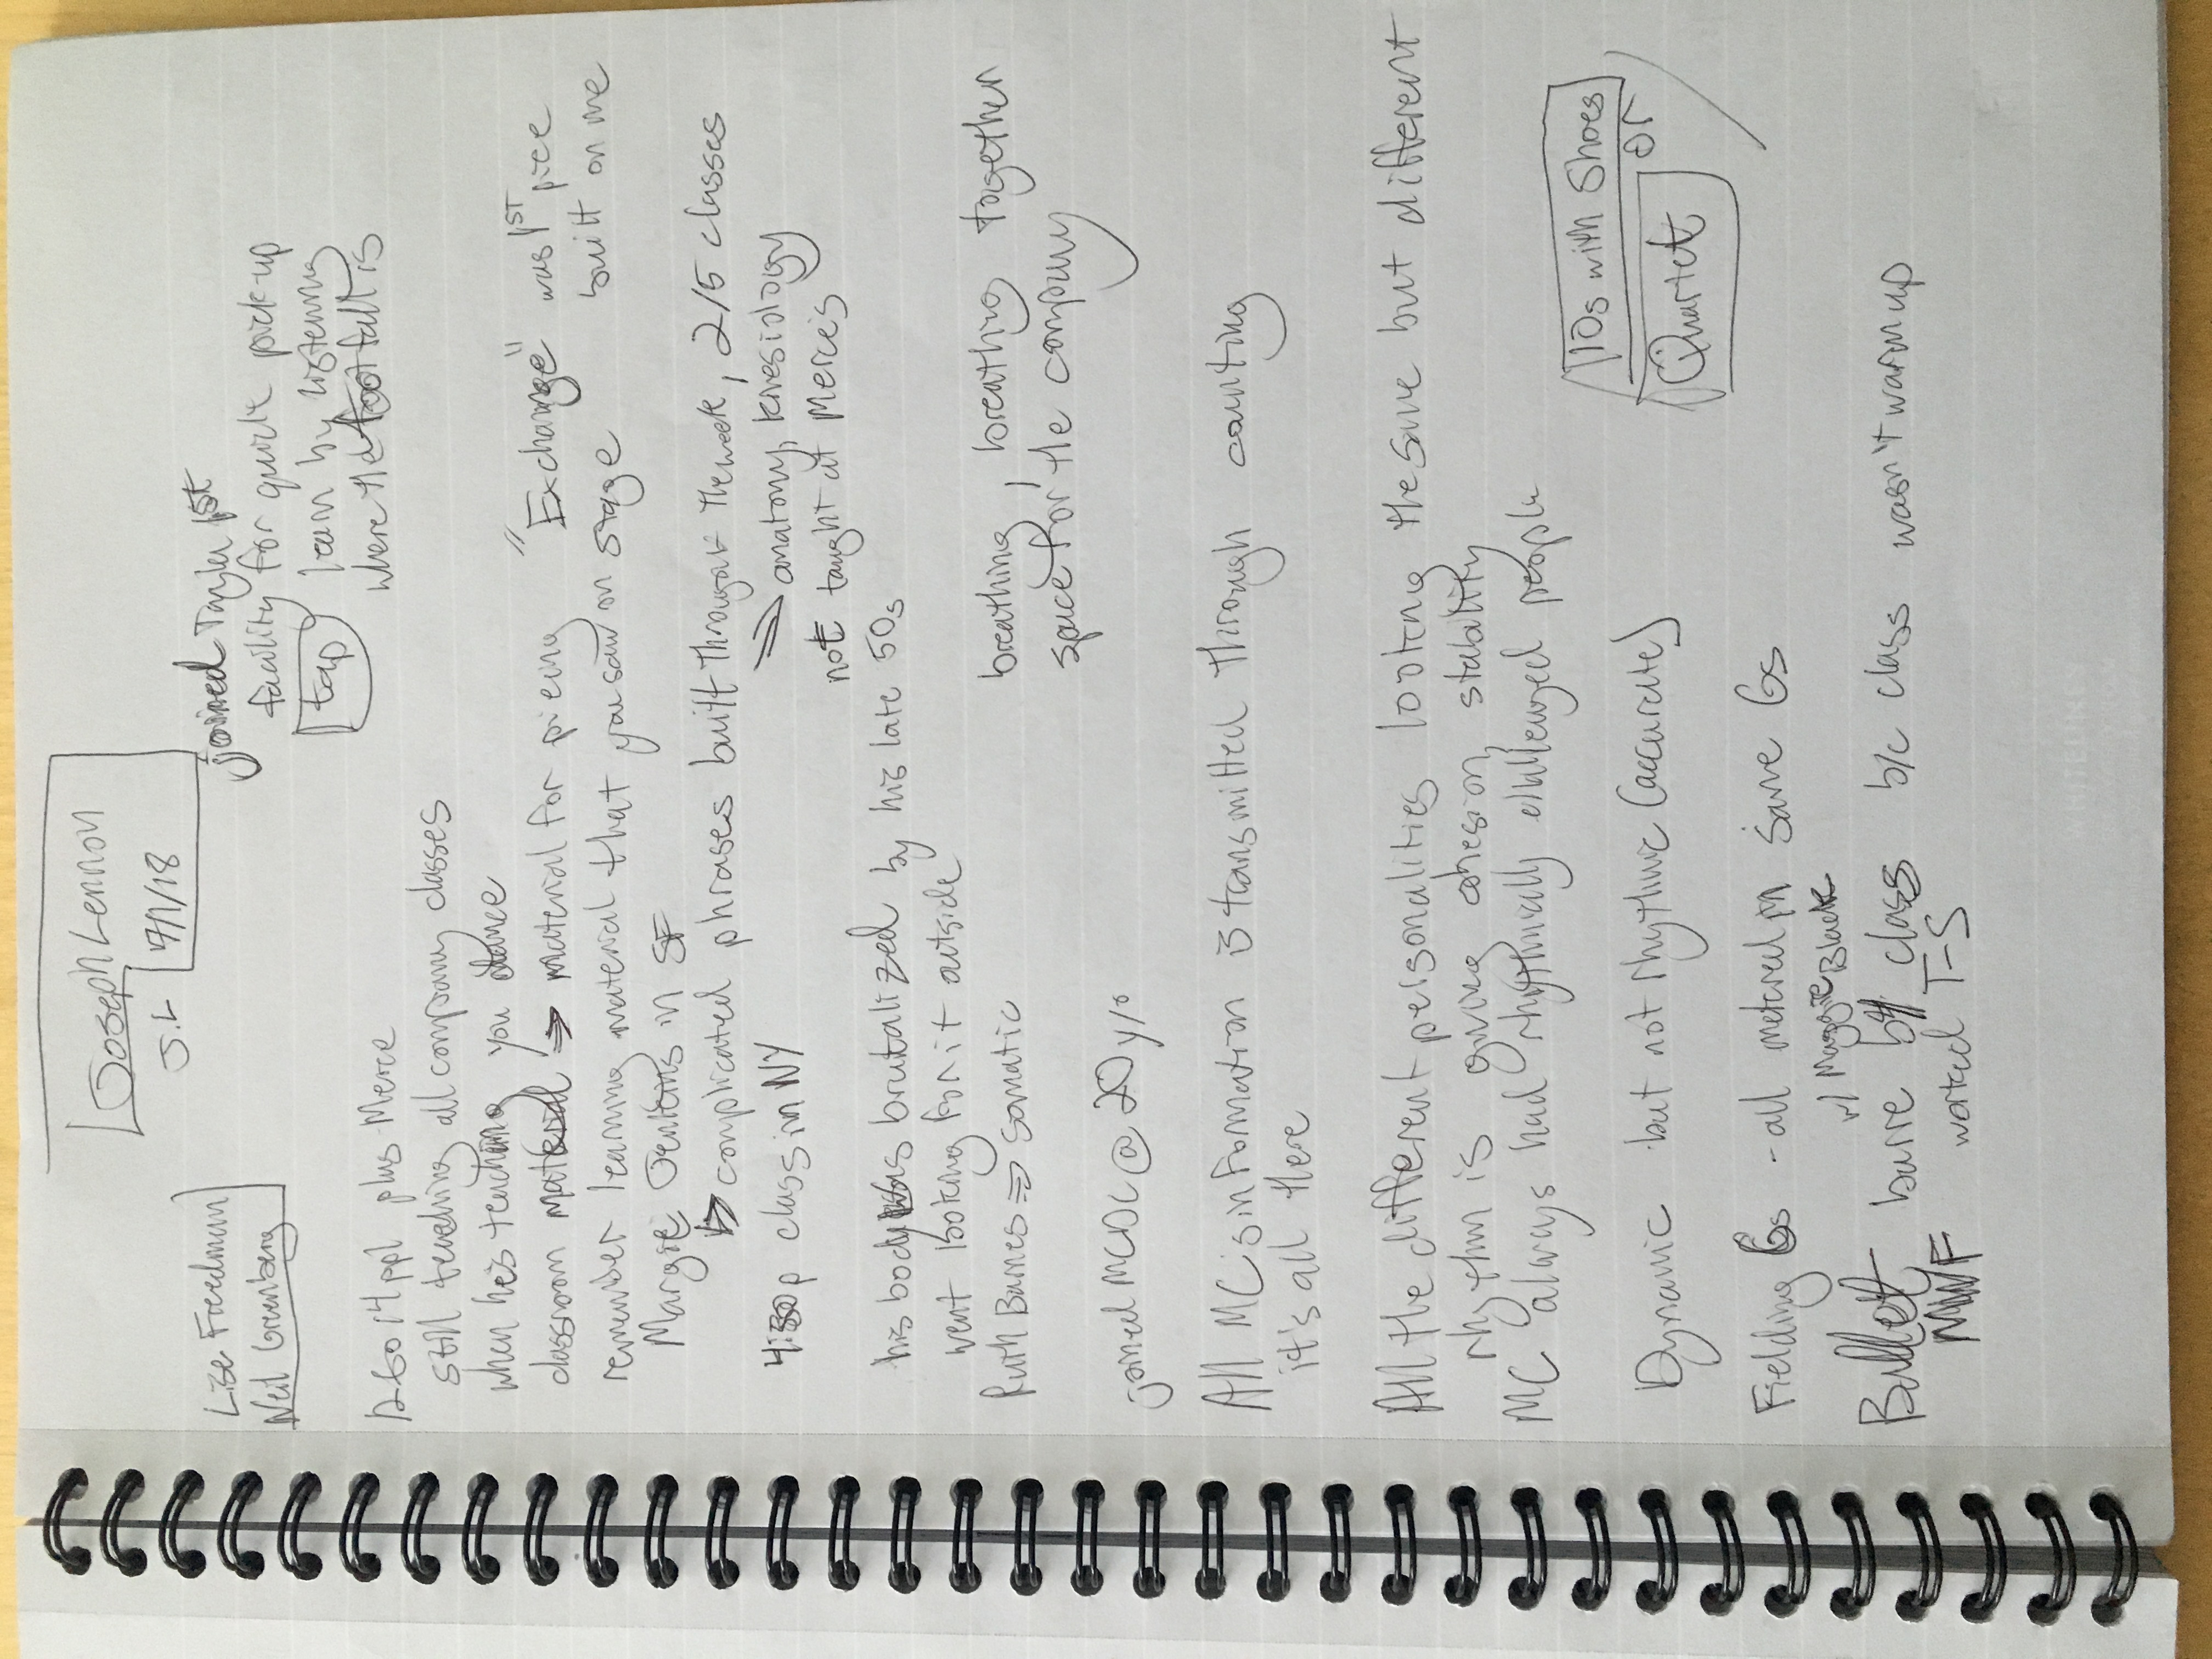 Joseph Lennon
J.L 7/1/18
Lise Friedman
Neil Greenberg
joined Taylor 1st
facility for quick pick-up
tap learn by listening
where the footfall is
13 or 14 ppl plus Merce
still teaching all company classes
when he's teaching you dance
classroom material ⇒ material for piecing
"Exchange" was 1ST piece
built on me
remember learning material that you saw on stage
Margie Jenkins in SF
complicated phrases built throughout the week, 2/5 classes
⇒ anatomy, kinesiology
not taught at Merce's
4:30p class in NY
his body was brutalized by his late 50s
went looking for it outside
Ruth Barnes ⇒ somatic
breathing, breathing together
space for the company
joined MCDC @ 20 y/o
All MC's information is transmitted through counting
it's all there
All the different personalities looking the same but different
rhythm is giving cohesion, stability
MC always had rhythmically challenged people
10s with Shoes
or
Quartet
Dynamic but not rhythmic (accurate)
Fielding 6s - all metered in same 6s
Ballet barre b4 class b/c class wasn't warm up
w/ Maggie Black
MWF worked T-S